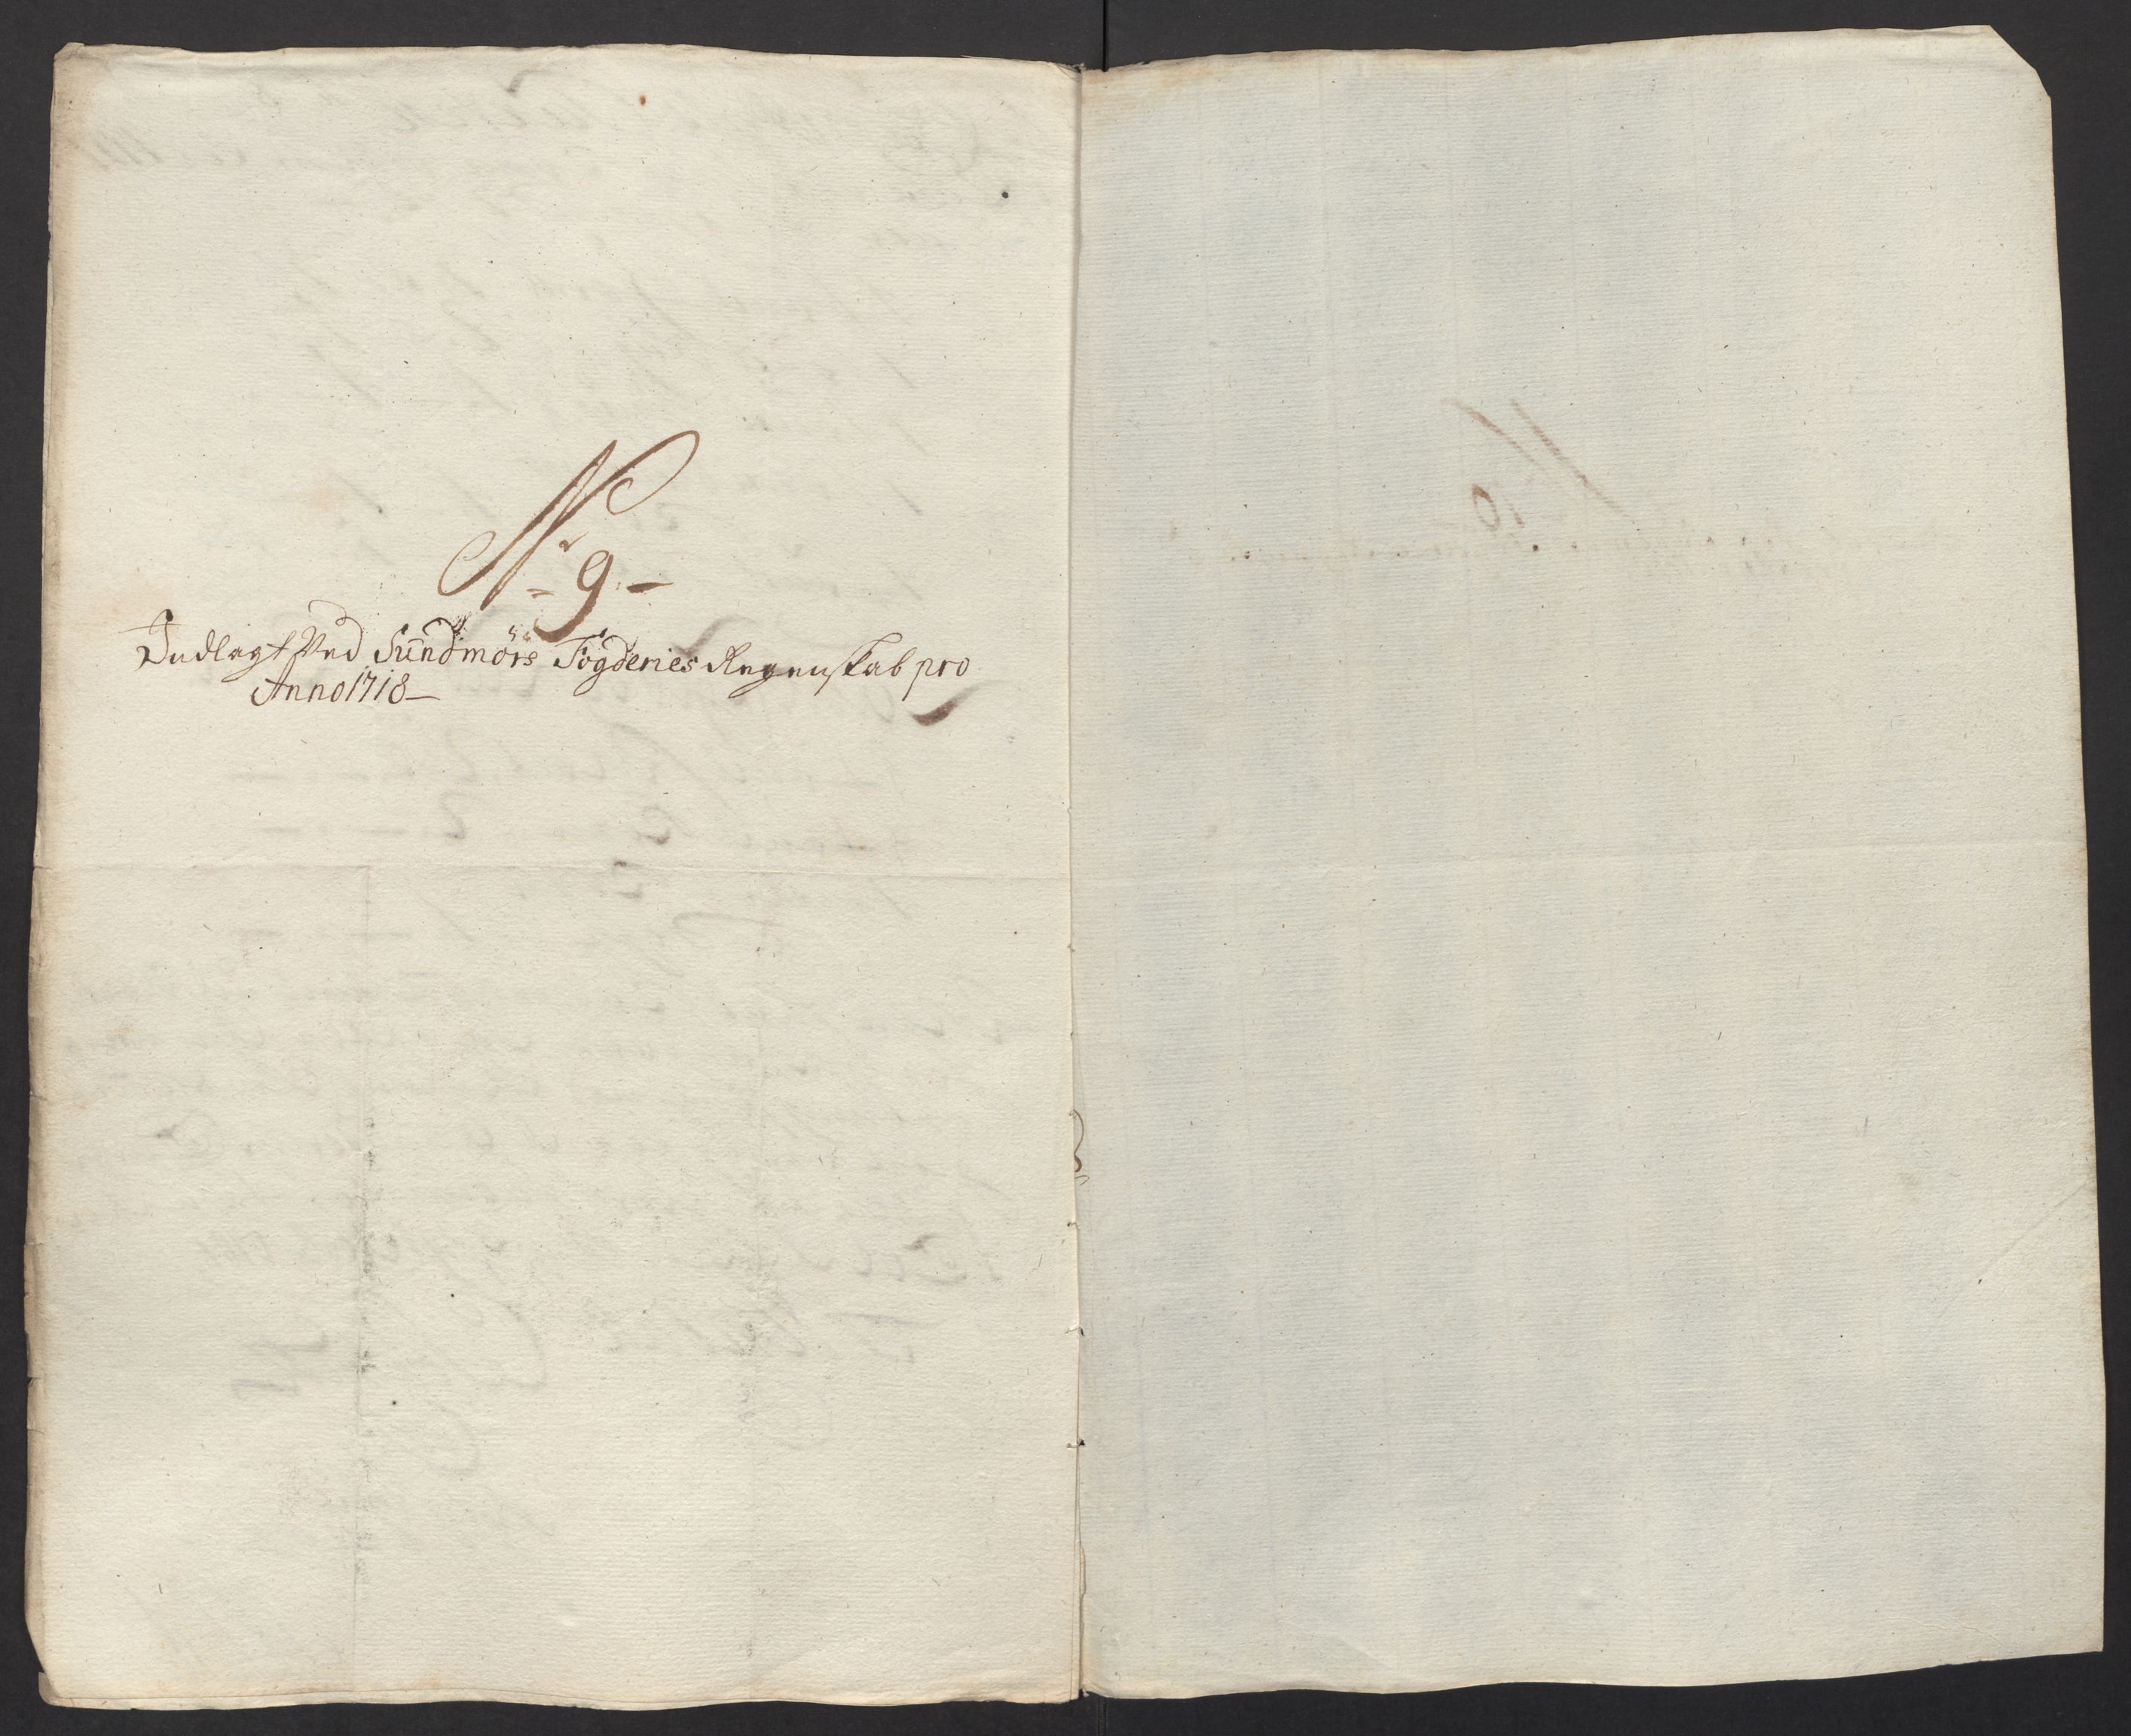 N: 9 –
Indlagt Ved Sundmörs Fögderies Regenskab pro
Anno 1718 –